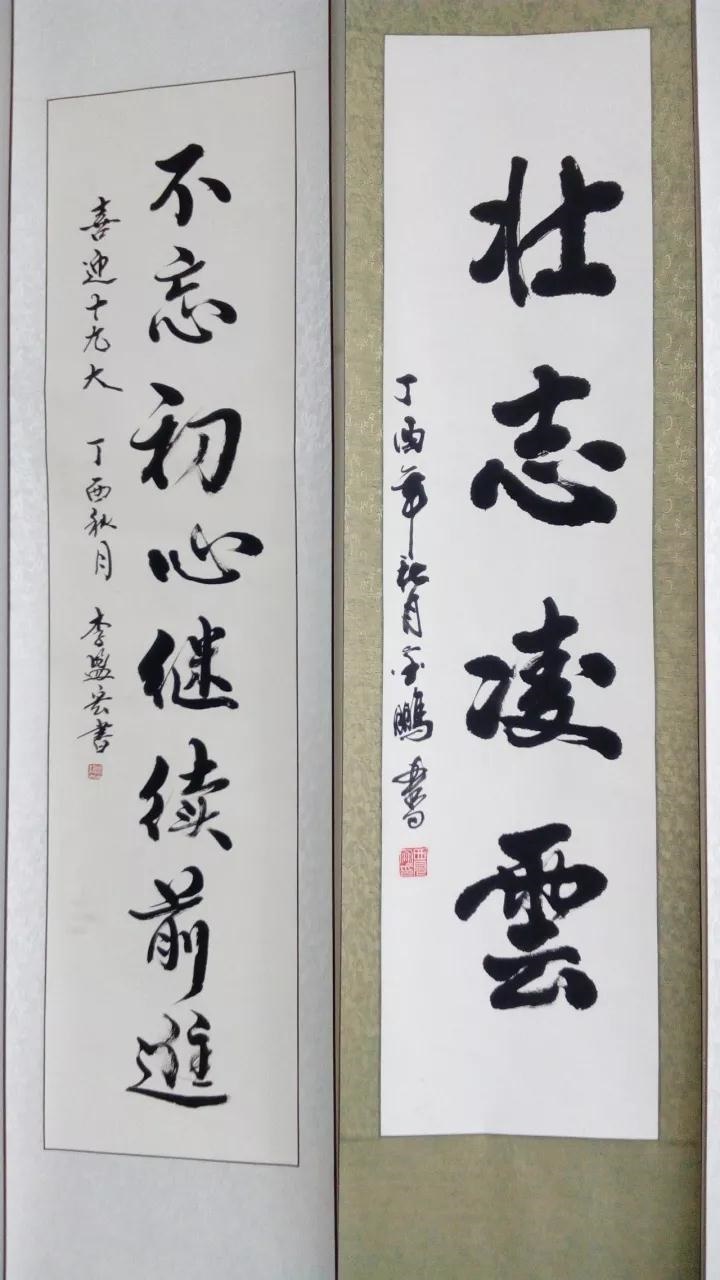 壮志凌雲
丁酉年秋月金鹏書
不忘初心继续前進
喜迎十九大 丁酉秋月 李盛宏書